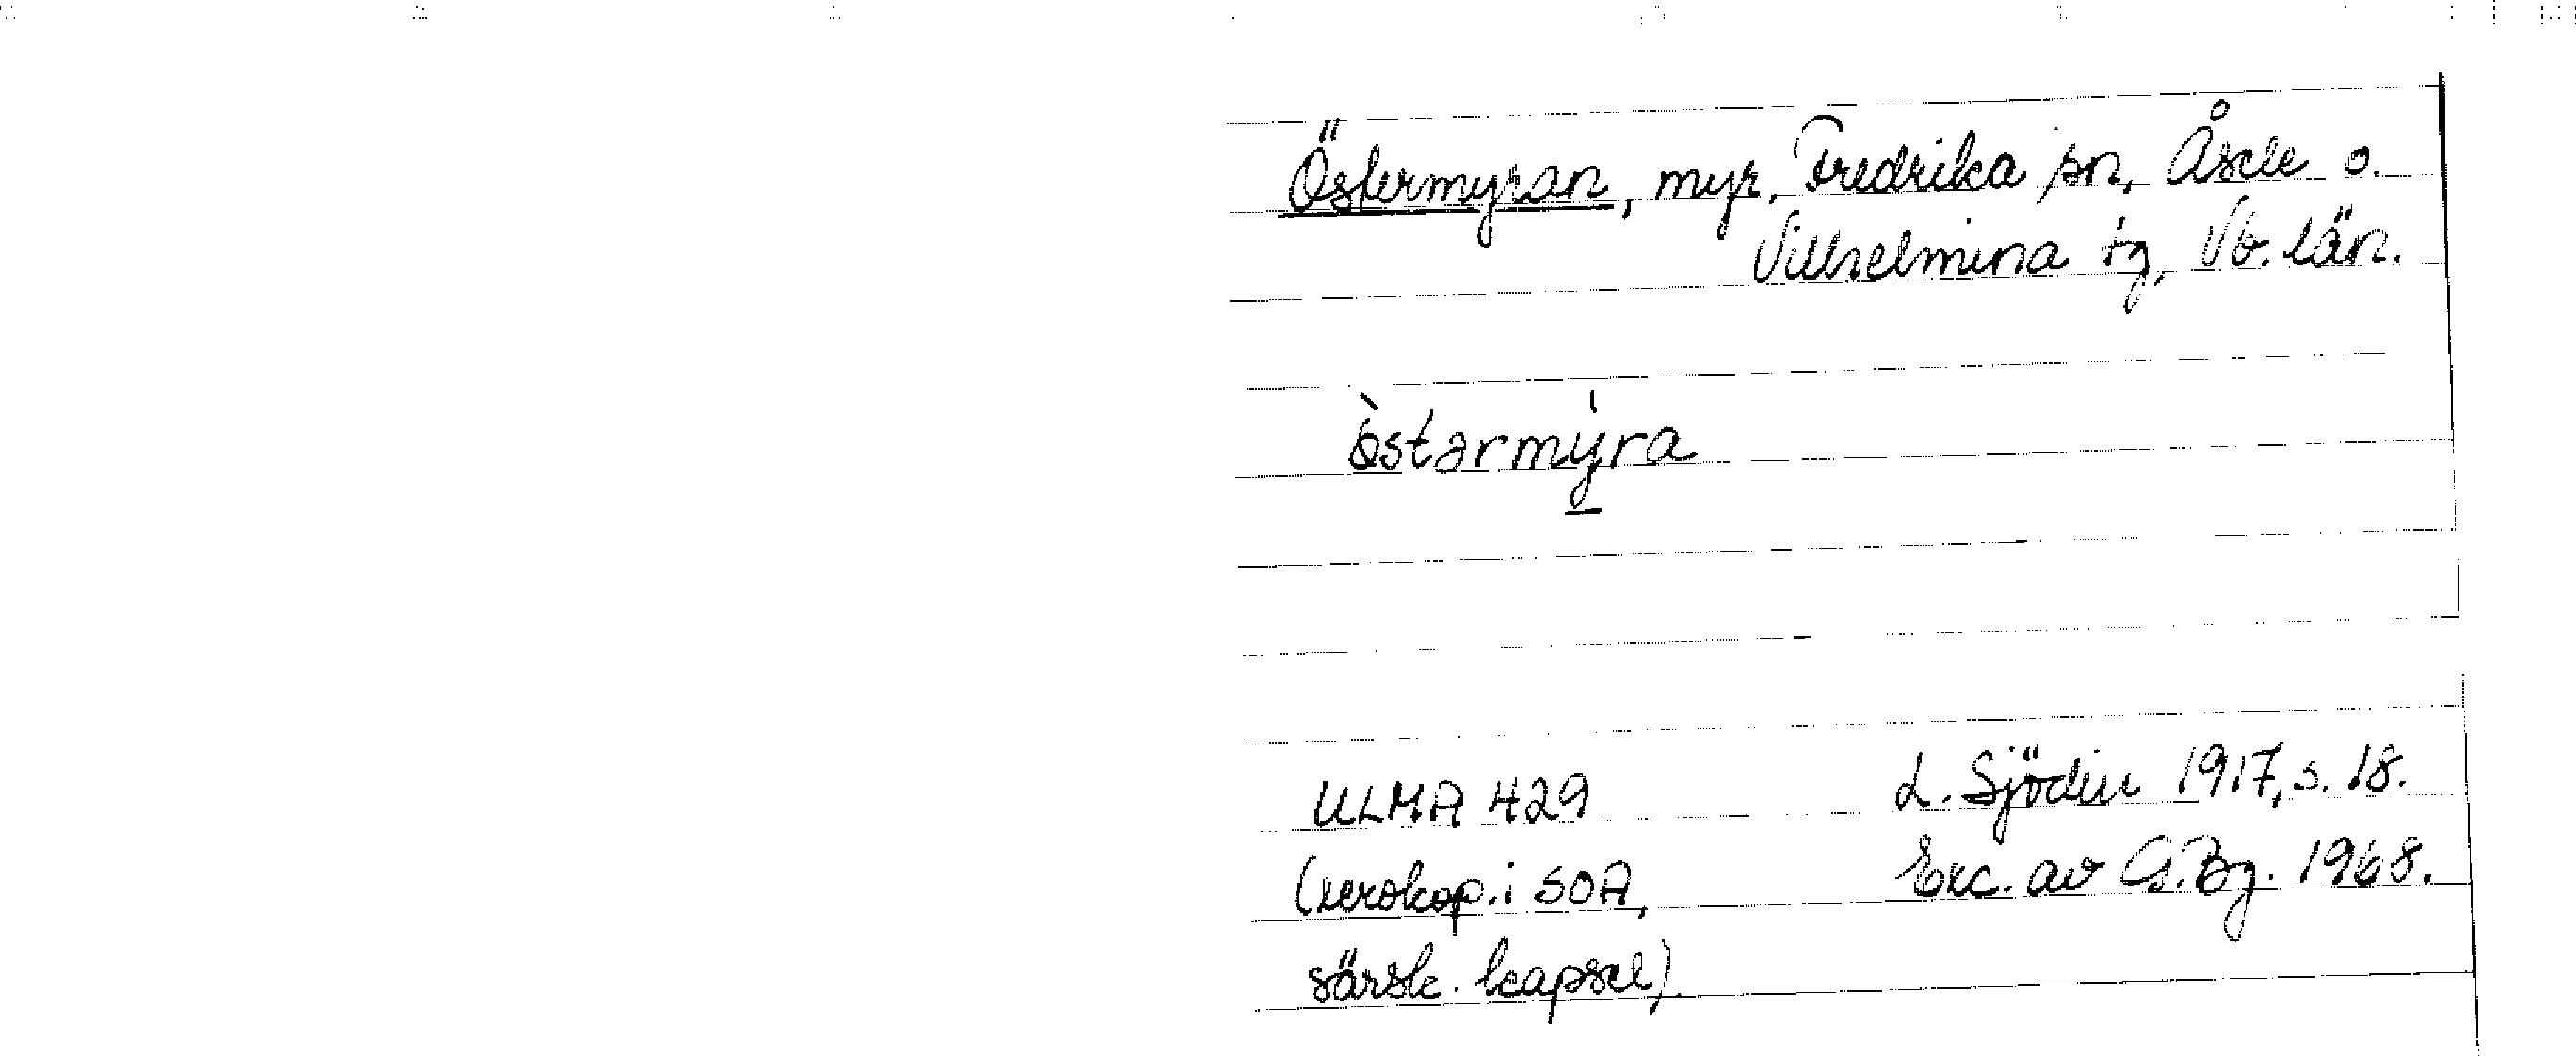 Östermyran, myr, Fredrika sn, Åsele o.
Vilhelmina tg, Vb. län.
östərmyra
ULMA 429
(xerokop. i SOA,
särsk. kapsel).
L. Sjödin 1917, s. 18.
Exc. av G.Bg. 1968.